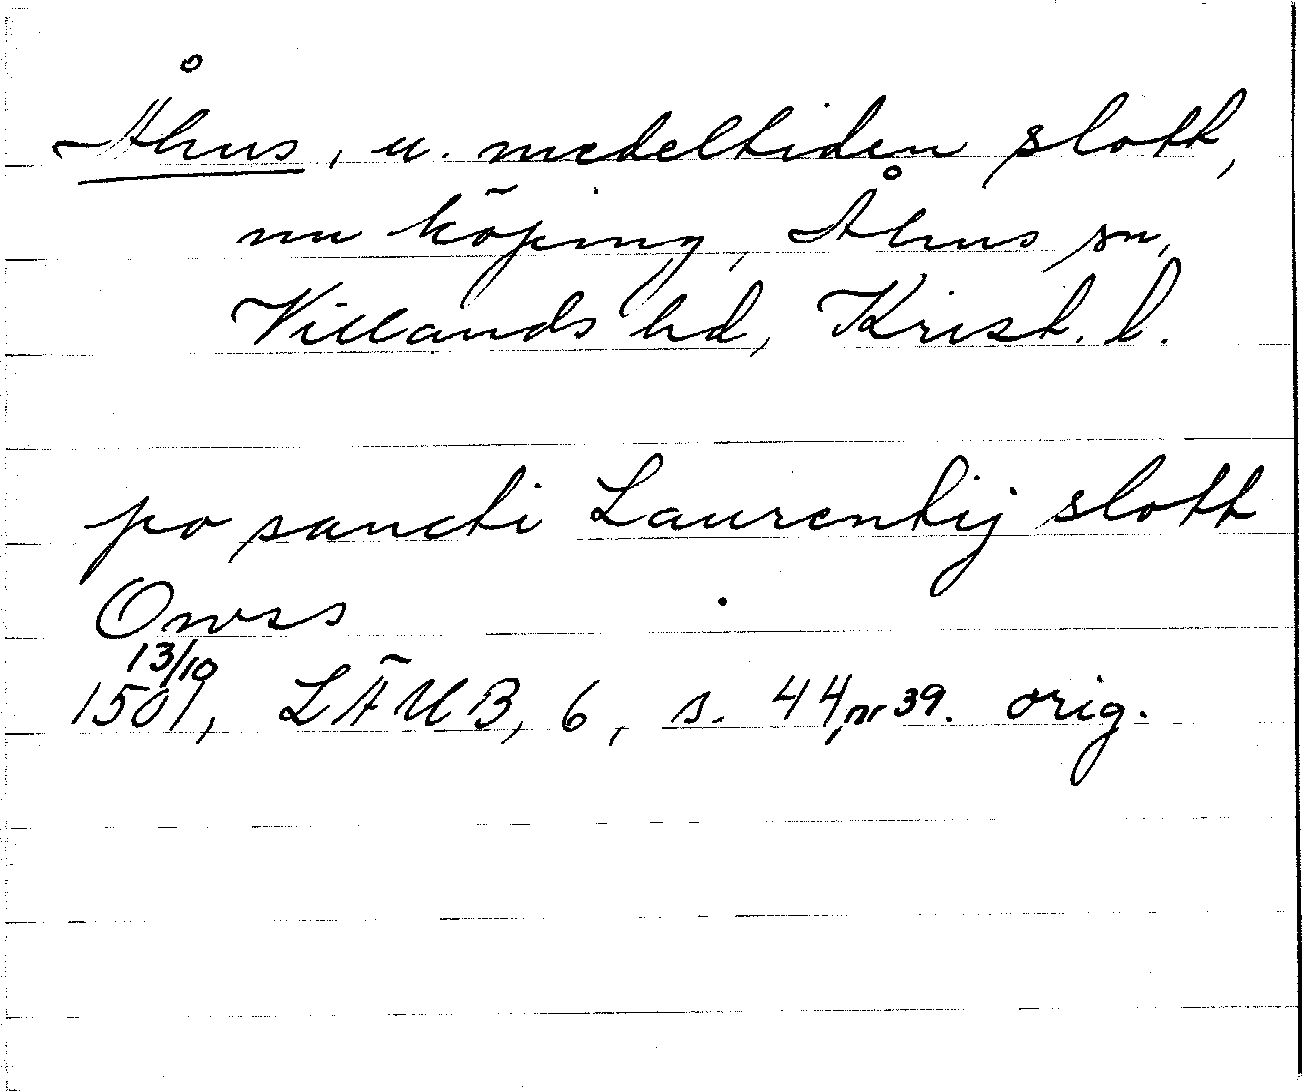 Åhus, u. medeltiden slott,
nu köping, Åhus sn,
Villands hd, Krist. l.
po sancti Laurentij slott
Owss
13/10
1501, LÄUB, 6, s. 44, nr 39. orig.